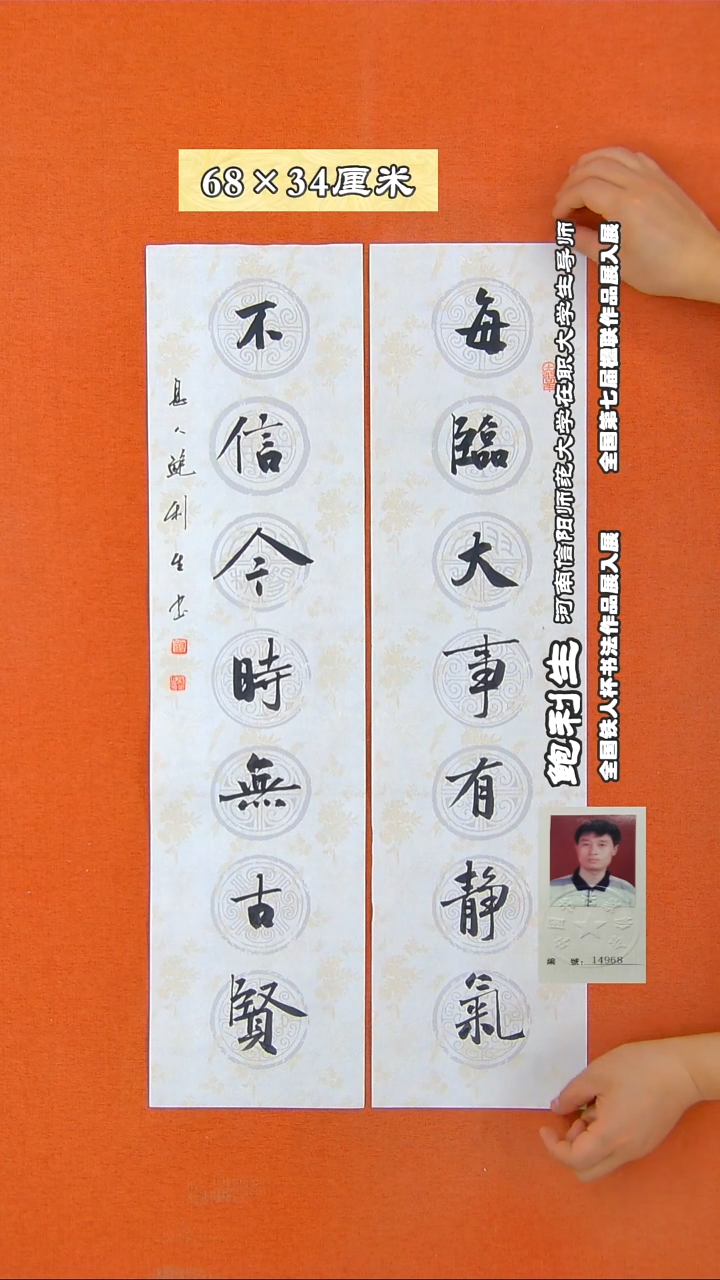 68×34厘米
每臨大事有静氣
不信今時無古賢
息人鲍利生书
鲍利生 河南信阳师范大学在职大学生导师
全国第七届楹联作品展入展
全国铁人杯书法作品展入展
編 號：14968